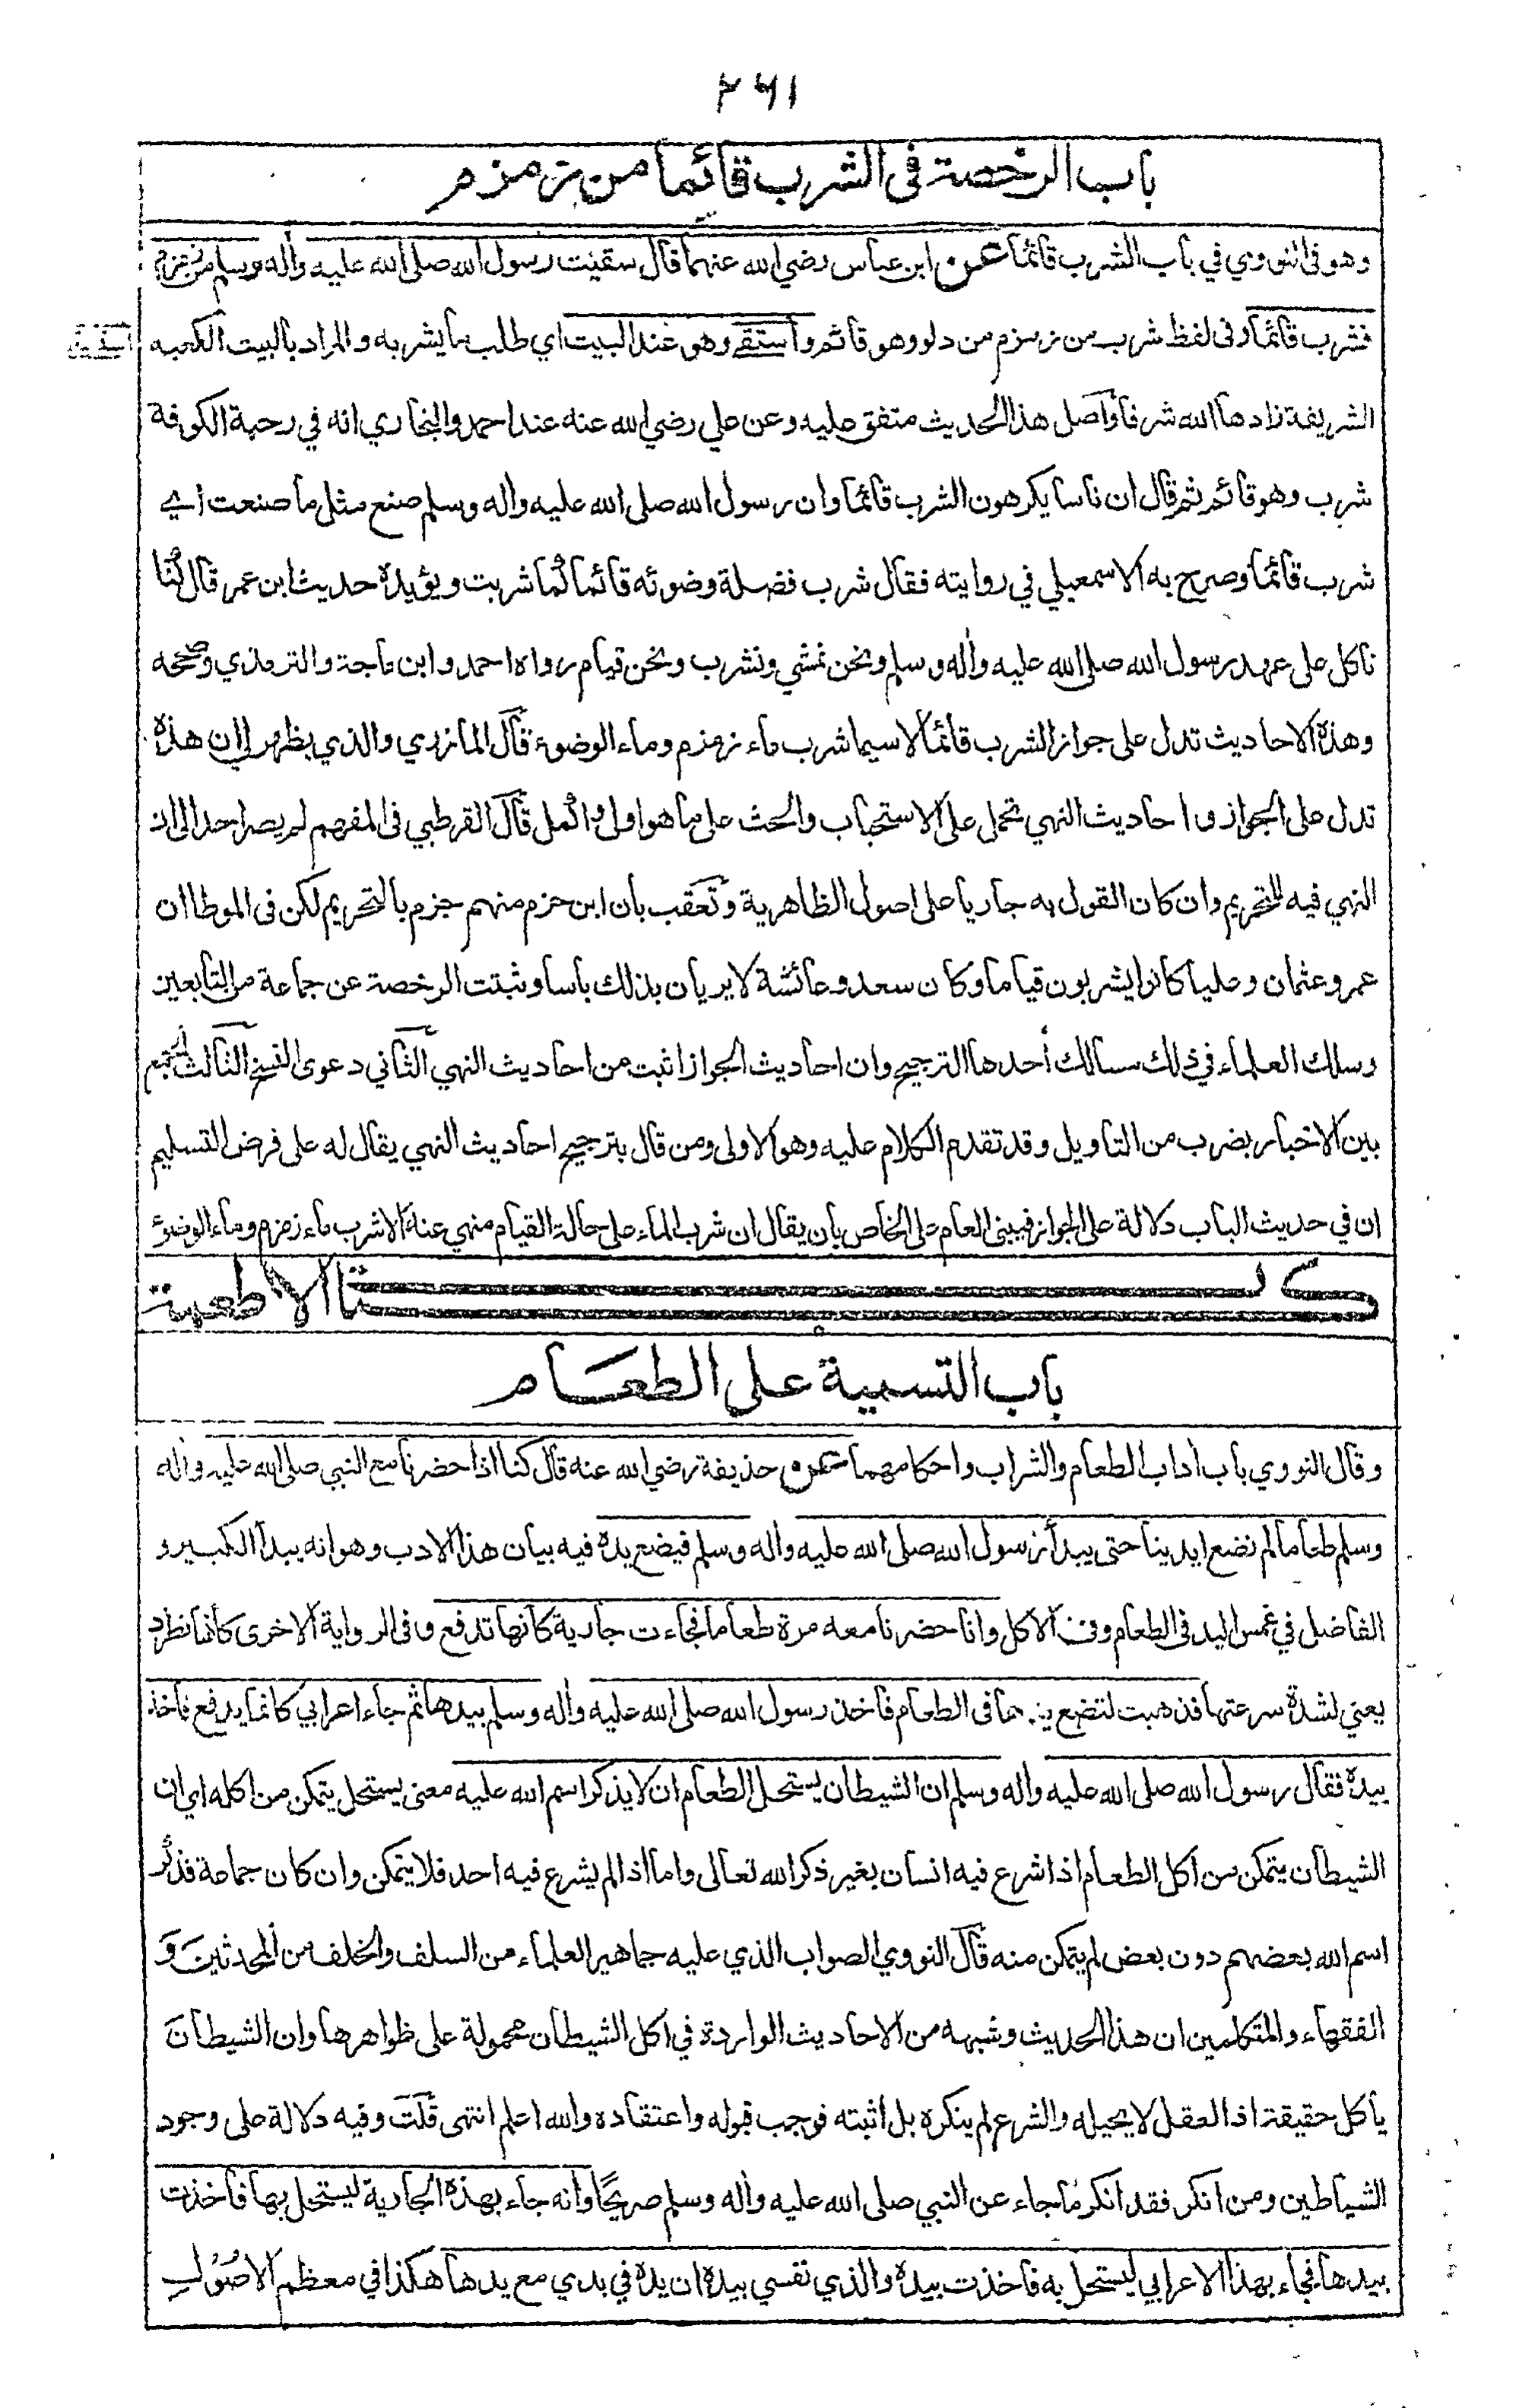 ٢٦١
باب الرخصة في الشرب قائما من زمزم
وهو في النووي في باب الشرب قائما عن ابن عباس رضي الله عنهما قال سقيت رسول الله صلى الله عليه واله وسلم من زمزم
فشرب قائما وفى لفظ شرب من زمزم من دلو وهو قائم واستقے وهو عند البيت اي طلب ما يشربه والمراد بالبيت الكعبه
الشريفة زادها الله شرفا واصل هذا الحديث متفق عليه وعن علي رضي الله عنه عند احمد والبخاري انه في رحبة الكوفة
شرب وهو قائم ثم قال ان ناسا يكرهون الشرب قائما وان رسول الله صلى الله عليه واله وسلم صنع مثل ما صنعت اي
شرب قائما وصرح به الاسمعيلي في روايته فقال شرب فضلة وضوئه قائما كما شربت ويؤيده حديث ابن عمر قال كنا
ناكل على عهد رسول الله صلى الله عليه واله وسلم ونحن نمشي ونشرب ونحن قيام رواه احمد وابن ماجة والترمذي وصححه
وهذه الاحاديث تدل على جواز الشرب قائما لا سيما شرب ماء زمزم وماء الوضوء قال المازري والذي يظهر لي ان هذه
تدل على الجواز واحاديث النهي تحمل على الاستحباب والحث على ما هو اولى واكمل قال القرطبي في المفهم لم يصر احد الى ان
النهي فيه للتحريم وان كان القول به جاريا على اصول الظاهرية وتعقب بان ابن حزم منهم جزم بالتحريم لكن في الموطا ان
عمر وعثمان وعليا كانوا يشربون قياما وكان سعد وعائشة لا يريان بذلك باسا وثبتت الرخصة عن جماعة من التابعين
وسلك العلماء في ذلك مسالك أحدها الترجيح وان احاديث الجواز اثبت من احاديث النهي الثاني دعوى النسخ الثالث الجمع
بين الاخبار بضرب من التاويل وقد تقدم الكلام عليه وهو الاولى ومن قال بترجيح احاديث النهي يقال له على فرض التسليم
ان في حديث الباب دلالة على الجواز فيبنى العام على الخاص بان يقال ان شرب الماء على حالة القيام منهي عنه الا شرب ماء زمزم وماء الوضوء
كتاب الاطعمة
باب التسمية على الطعام
وقال النووي باب اداب الطعام والشراب واحكامهما عن حذيفة رضي الله عنه قال كنا اذا حضرنا مع النبي صلى الله عليه واله
وسلم طعاما لم نضع ايدينا حتى يبدأ رسول الله صلى الله عليه واله وسلم فيضع يده فيه بيان هذا الادب وهو انه يبدأ الكبير و
الفاضل في غمس اليد في الطعام وفى الاكل وانا حضرنا معه مرة طعاما فجاءت جارية كانها تدفع وفى الرواية الاخرى كأنما تطرد
يعني لشدة سرعتها فذهبت لتضع يدها في الطعام فاخذ رسول الله صلى الله عليه واله وسلم بيدها ثم جاء اعرابي كانما يدفع فاخذ
بيده فقال رسول الله صلى الله عليه واله وسلم ان الشيطان يستحل الطعام ان لا يذكر اسم الله عليه معنى يستحل يتمكن من اكله اي ان
الشيطان يتمكن من اكل الطعام اذا شرع فيه انسان بغير ذكر الله تعالى واما اذا لم يشرع فيه احد فلا يتمكن وان كان جماعة فذكر
اسم الله بعضهم دون بعض لم يتمكن منه قال النووي الصواب الذي عليه جماهير العلماء من السلف والخلف من المحدثين و
الفقهاء والمتكلمين ان هذا الحديث وشبهه من الاحاديث الواردة في اكل الشيطان محمولة على ظواهرها وان الشيطان
يأكل حقيقة اذا العقل لا يحيله والشرع لم ينكره بل اثبته فوجب قبوله واعتقاده والله اعلم انتهى قلت وفيه دلالة على وجود
الشياطين ومن انكر فقد انكر ما جاء عن النبي صلى الله عليه واله وسلم صريحا وانه جاء بهذه الجارية ليستحل بها فاخذت
بيدها فجاء بهذا الاعرابي ليستحل به فاخذت بيده والذي نفسي بيده ان يده في يدي مع يدها هكذا في معظم الاصول